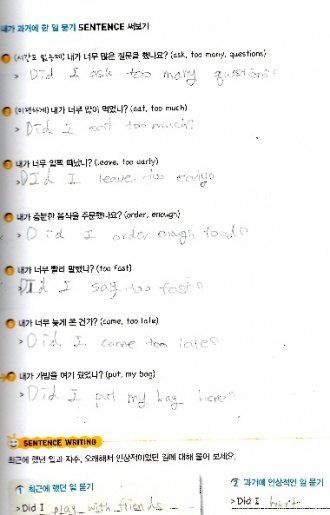 내가 과거에 한 일 묻기 SENTENCE 써보기
내가 너무 많은 질문을 했나요? (ask, too many, questions)
> Did I ask too many questions
내가 너무 많이 먹었니? (eat, too much)
> Did I eat too much?
내가 너무 일찍 떠났니? (leave, too early)
> DId I leave too early?
내가 충분한 음식을 주문했나요? (order, enough)
> Did I order enough foods?
내가 너무 빨리 말했니? (too fast)
> Did I say too fast?
내가 너무 늦게 온 건가? (come, too late)
> Did I come too late?
내가 가방을 여기 뒀었니? (put, my bag)
> Did I put my bag here?
SENTENCE WRITING
최근에 했던 일과 자주, 오래해서 인상적이었던 일에 대해 물어 보세요.
1 최근에 했던 일 묻기
2 과거에 인상적인 일 묻기
> Did I play with friends
> Did I